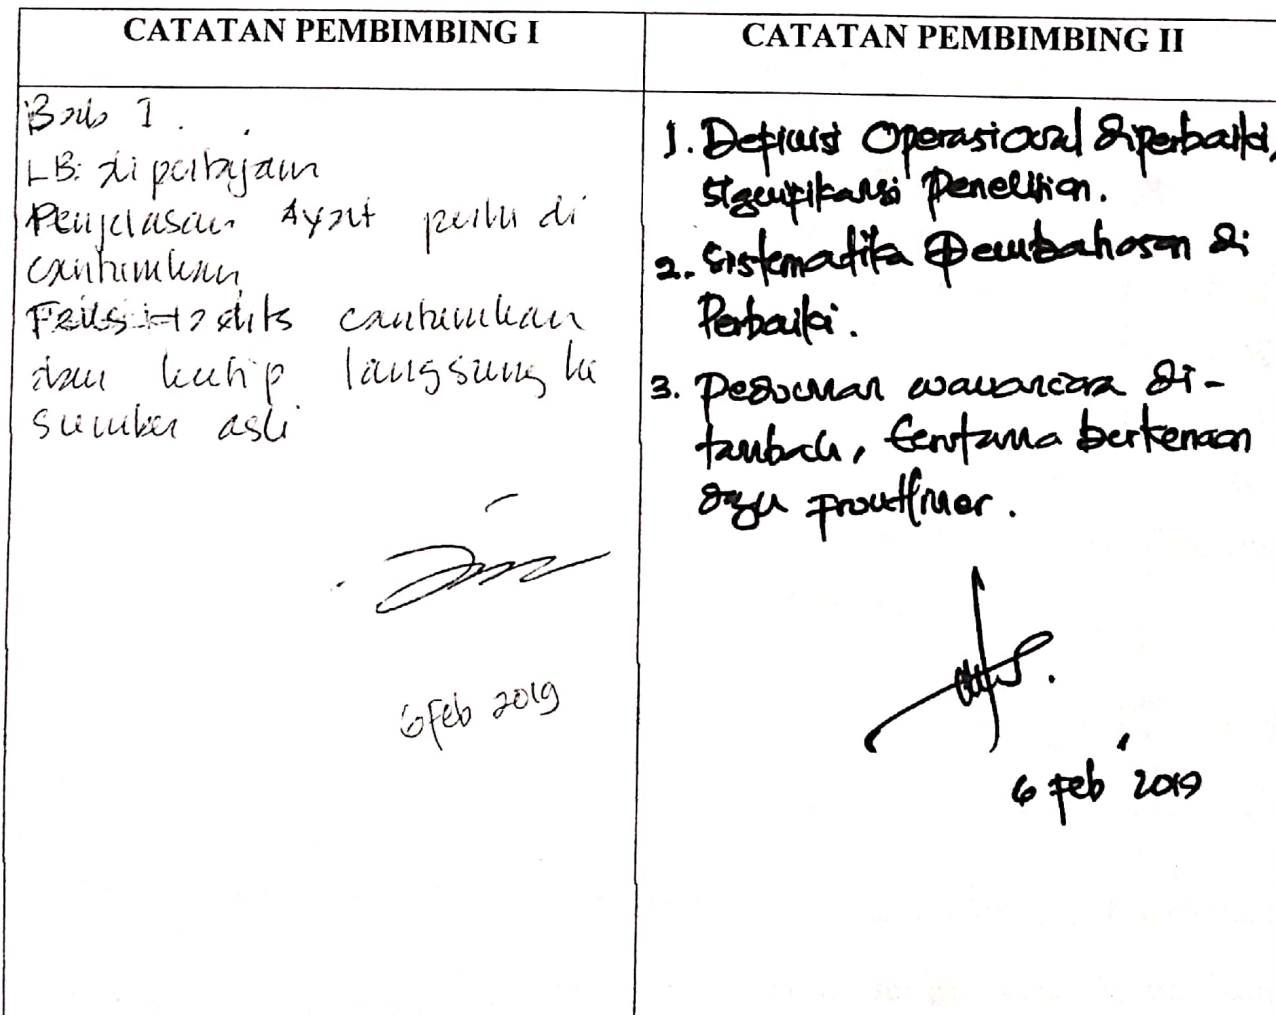 CATATAN PEMBIMBING I
Bab I.
LB: dipertajam
Penjelasan Ayat perlu di
cantumkan
Hadits cantumkan
dan kutip langsung ke
sumber asli
6 Feb 2019
CATATAN PEMBIMBING II
1. Definisi Operasional diperbaiki,
signifikansi Penelitian.
2. Sistematika Pembahasan di
Perbaiki.
3. Pedoman wawancara di-
tambah, terutama berkenaan
6 Feb' 2019